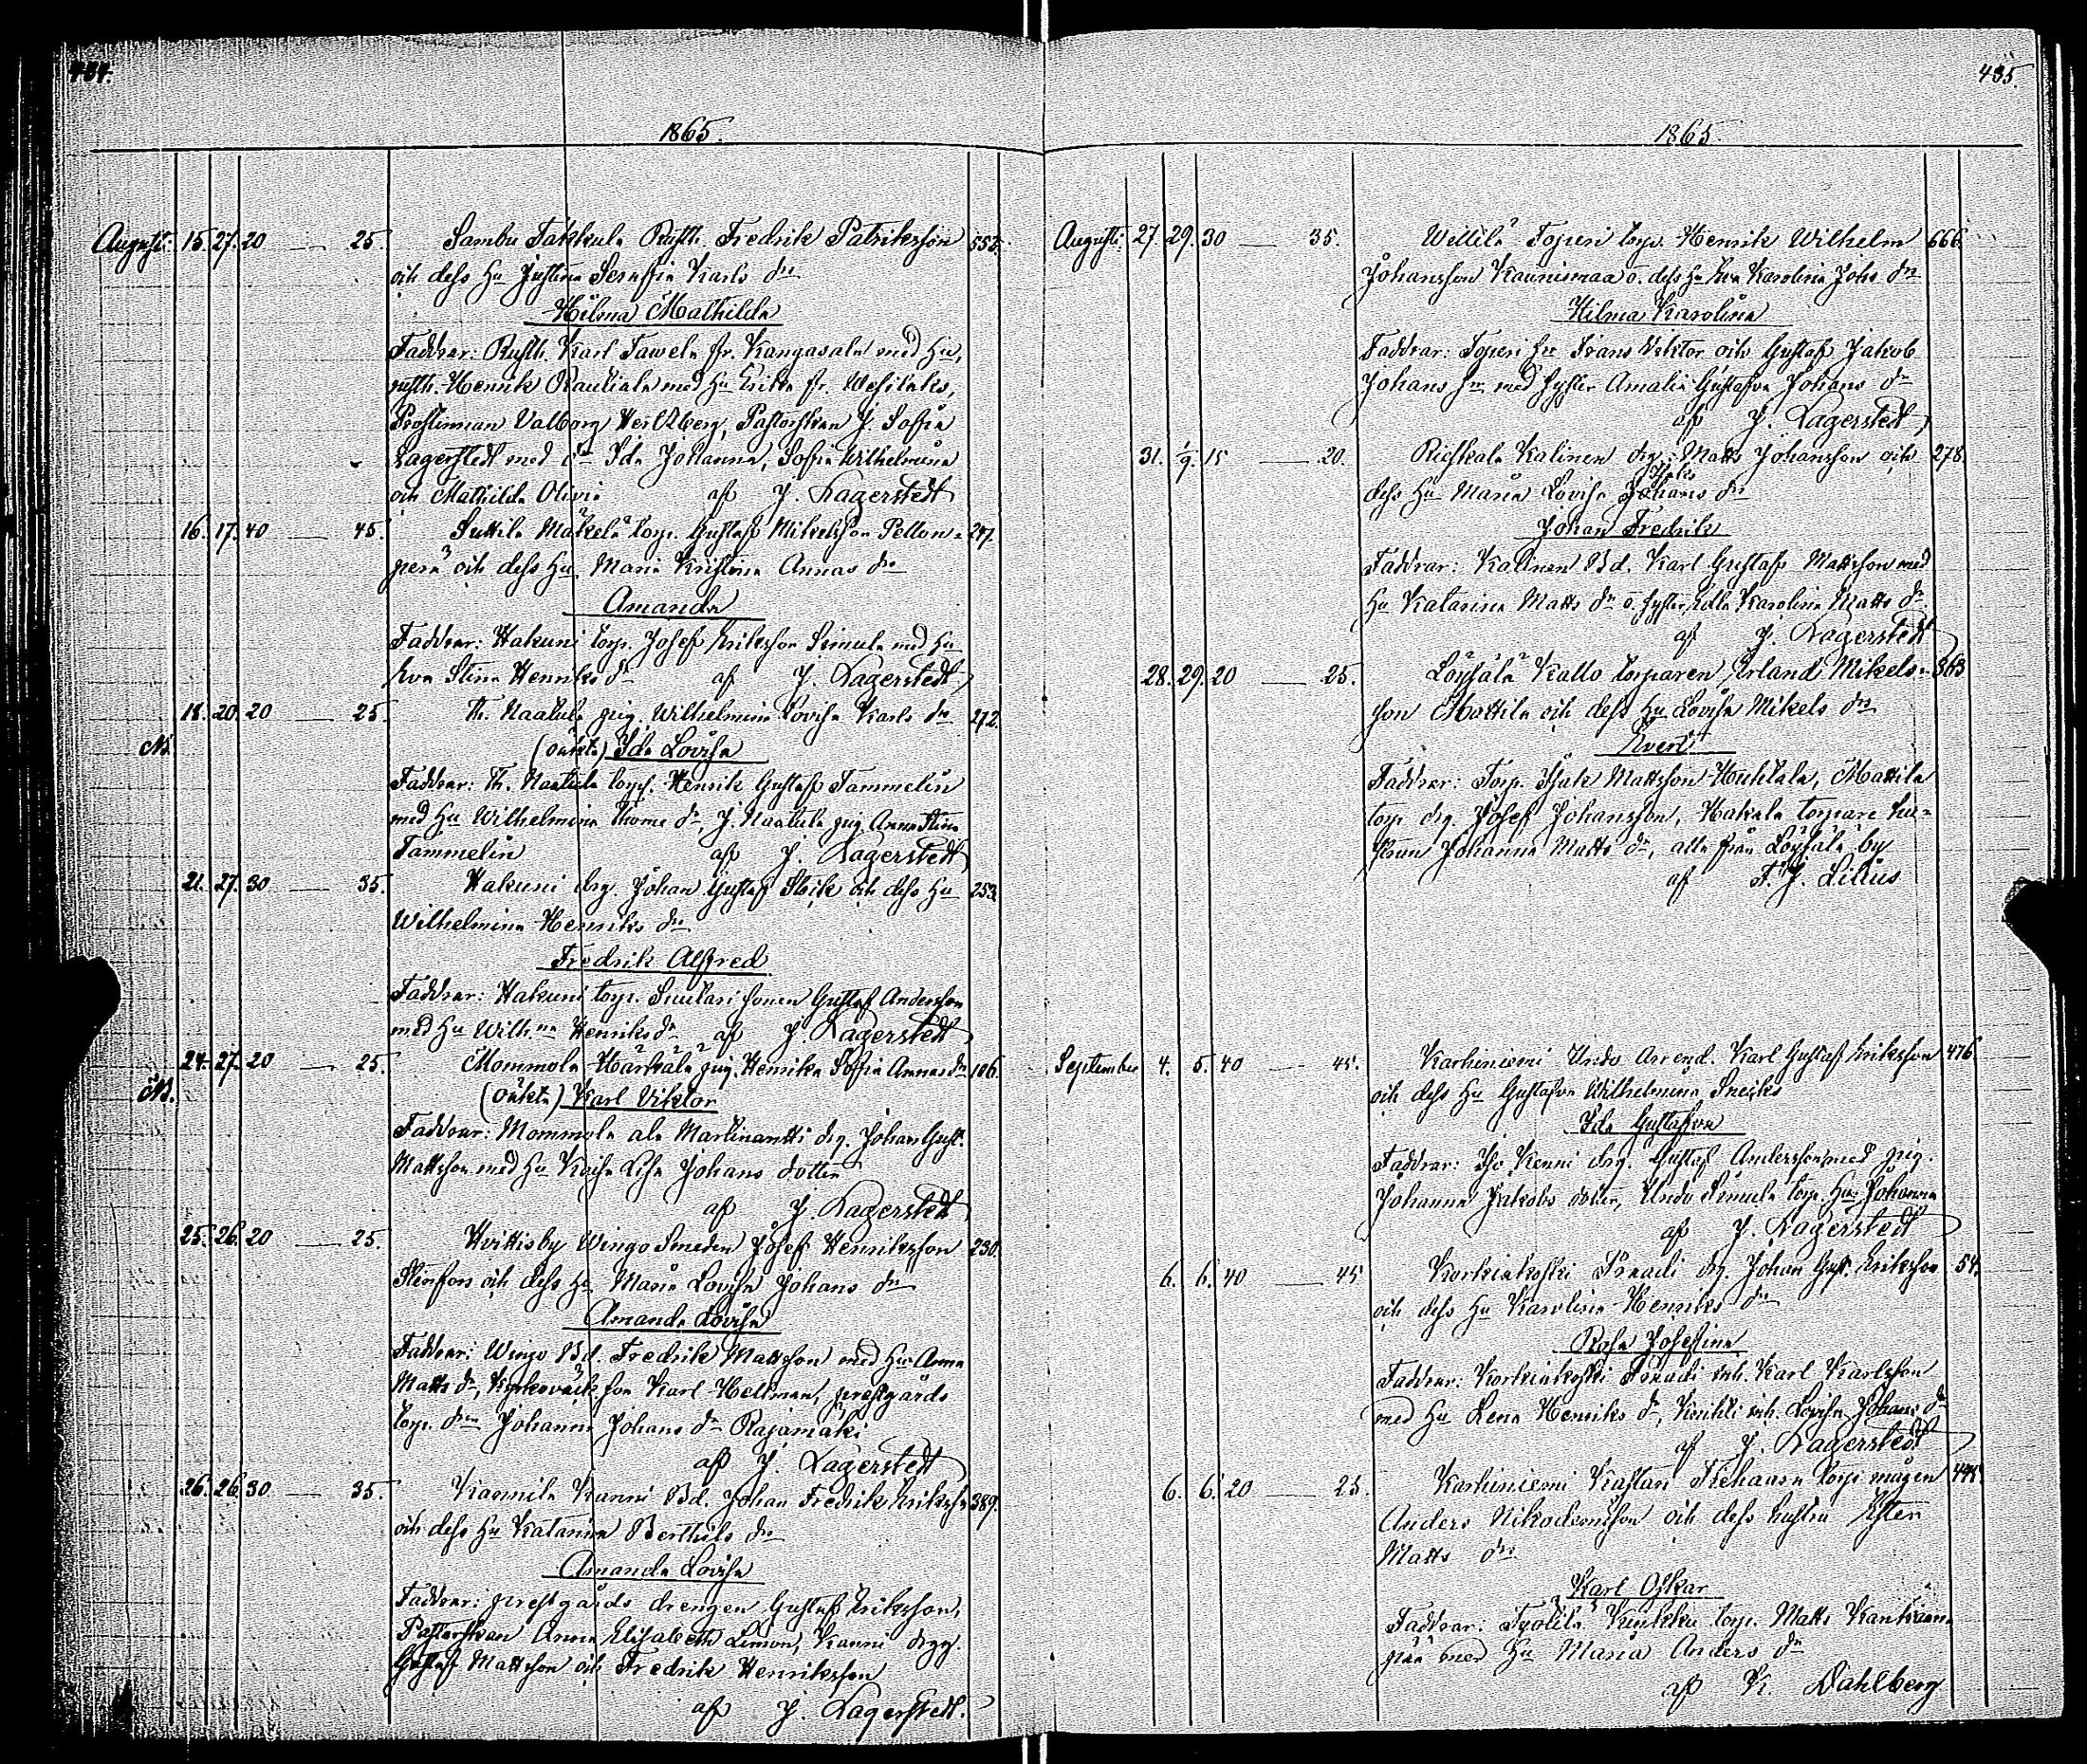 434.
1865.
Augusti: 15. 27. 20 — 25. Sambu Takkula Rusth. Fredrik Patriksson 553.
och dess Hu Justina Serafia Karls dr
Hilma Mathilda
Faddrar: Rusth. Karl Tawela fr. Kangasala med Hu,
rusth. Henrik Rautiala med Hu Erika fr. Wesilaks,
Prostinnan Valborg Hertzberg, Pastorskan J. Sofia
Lagerstedt med dr Ida Johanna, Sofia Wilhelmina
och Mathilda Olivia af J. Lagerstedt
16. 17. 40 — 45. Suttila Mäkelä torp. Gustaf Mikelsson Pellon- 247.
perä och dess Hu Maria Kristina Annas dr
Amanda
Faddrar: Hakuni torp. Josef Eriksson Simula med Hu
Eva Stina Henriks dr af J. Lagerstedt
18. 20. 20 — 25. Th. Naatula pig. Wilhelmina Lovisa Karls dr 272.
N. (oäkta) Ida Lovisa
Faddrar: Th. Naatula torp. Henrik Gustaf Tammelin
med Hu Wilhelmina Thome dr, J. Naatula pig. Anna Stina
Tammelin af J. Lagerstedt
21. 27. 30 — 35. Hakuni drg. Johan Gustaf Sleik och dess Hu 253.
Wilhelmina Henriks dr
Fredrik Alfred
Faddrar: Hakuni torp. Suutari sonen Gustaf Andersson
med Hu Wilh:na Henriks dr af J. Lagerstedt
24. 27. 20 — 25. Mommola Härkälä pig. Henrika Sofia Annas dr 106.
N. (oäkta) Karl Viktor
Faddrar: Mommola ala Martinantti drg. Johan Gust.
Mattsson med Hu Kaisa Lisa Johans dotter
af J. Lagerstedt
25. 26. 20 — 25. Hvittisby Wingo Smeden Josef Henriksson 230.
Stenfors och dess Hu Maria Lovisa Johans dr
Amanda Lovisa
Faddrar: Wingo Bd. Fredrik Mattsson med Hu Anna
Matts dr, Kyrkovakt. son Karl Hellman, prestgårds
torp. drn Johanna Johans dr Rajamäki
af J. Lagerstedt
26. 26. 30 — 35. Kaannila Kanni Bd. Johan Fredrik Eriksson 389.
och dess Hu Katarina Berthils dr
Amanda Lovisa
Faddrar: prestgårds drengen Gustaf Eriksson,
Pastorskan Anna Elisabeth Limon, Kanni drgg.
Gustaf Mattsson och Fredrik Henriksson
af J. Lagerstedt.
435.
1865.
Augusti: 27. 29. 30 — 35. Willilä Topari torp. Henrik Wilhelm 666.
Johansson Kaunismaa o. dess Hu Eva Karolina Johs dr
Hilma Karolina
Faddrar: Topari sr Frans Viktor och Gustaf Jakob
Johans sr med syster Amalia Gustafva Johans dr
af J. Lagerstedt
31. 1/9. 15 — 20. Rieskala Kalinen drg. Matts Johansson och 278.
dess Hu Maria Lovisa Johans dr
Johan Fredrik
Faddrar: Kalinen Bd. Karl Gustaf Mattsson med
Hu Katarina Matts dr o. syster Edla Karolina Matts dr
af J. Lagerstedt
28. 29. 20 — 25. Löysälä Kallo torparen Erland Mikels- 863
son Mattila och dess Hu Lovisa Mikels dr
Evert
Faddrar: Torp. Isak Mattsson Huhtala, Mattila
torp. drg. Josef Johansson, Hakala torpare hu-
strun Johanna Matts dr, alla från Löysälä by
af F. J. Lilius
September 4. 5. 40 — 45. Karhiniemi Undo Arrend. Karl Gustaf Eriksson 476.
och dess Hu Gustafva Wilhelmina Sneiks
Ida Gustafva
Faddrar: Iso Kenni drg. Gustaf Andersson med pig.
Johanna Jakobs dotter, Undo Simula torp. Hu Johanna
af J. Lagerstedt
6. 6. 40 — 45 Korkiakoski Praadi drg. Johan Gust. Eriksson 54.
och dess Hu Karolina Henriks dr
Rosa Josefina
Faddrar: Korkiakoski Praadi inh. Karl Karlsson
med Hu Lena Henriks dr, Knihti inh. Lovisa Johans dr
af J. Lagerstedt
6. 6. 20 — 25. Karhiniemi Kastari torp. mågen 444.
Anders Nikodemisson och dess hustru Ester
Matts dr
Karl Oskar
Faddrar: Torp. Matts Kankaan-
pää med Hu Maria Anders dr
af K. Dahlberg